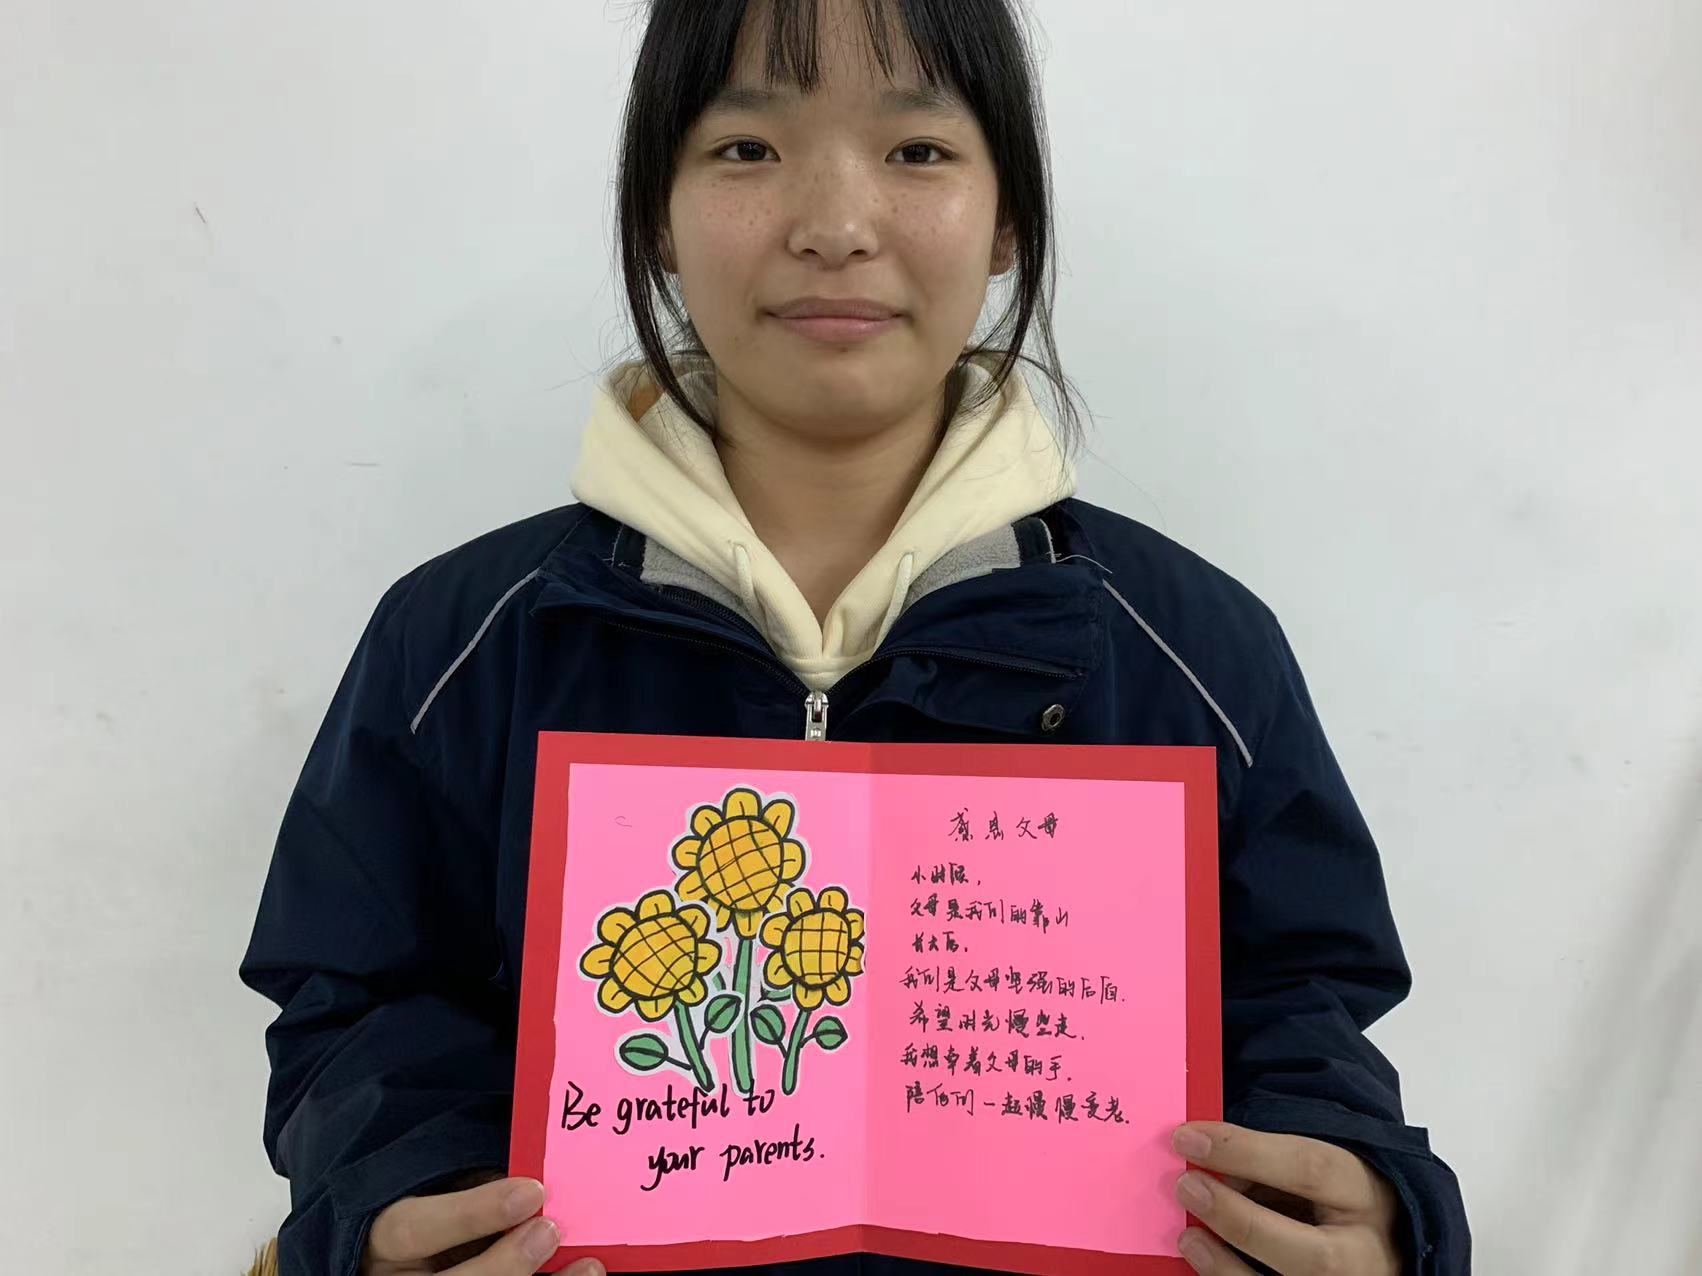 Be grateful to
your parents.
感恩父母
小时候,
父母是我们的靠山
长大后,
我们是父母坚强的后盾.
希望时光慢些走,
我想牵着父母的手,
陪他们一起慢慢变老.